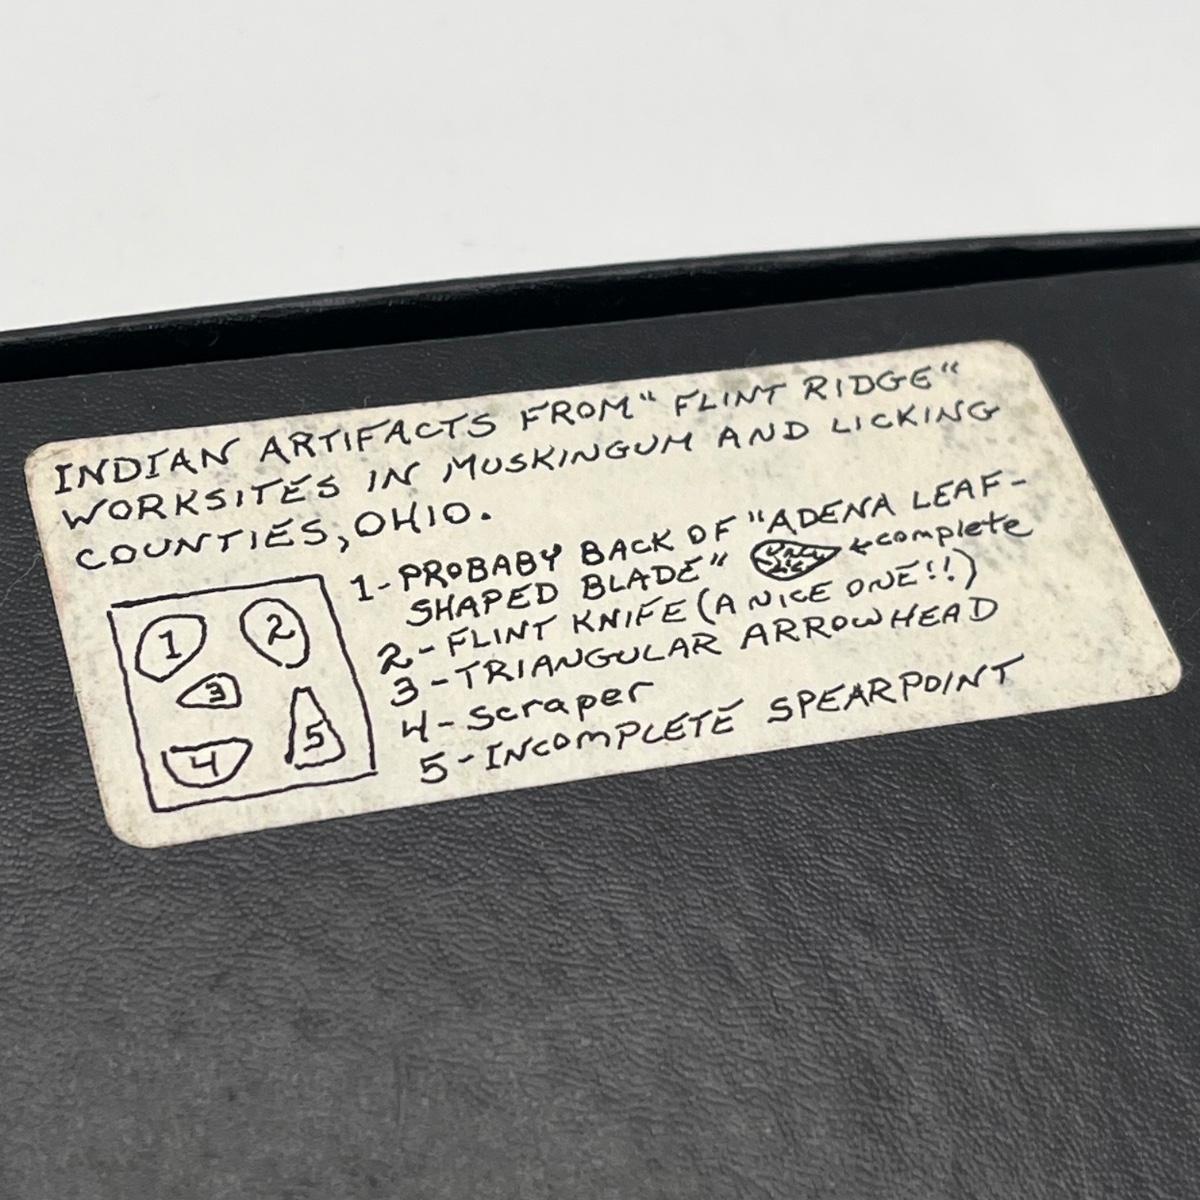 INDIAN ARTIFACTS FROM "FLINT RIDGE"
WORKSITES IN MUSKINGUM AND LICKING
COUNTIES, OHIO.
1-PROBABY BACK OF "ADENA LEAF-
SHAPED BLADE" ←complete
2-FLINT KNIFE (A NICE ONE!!)
3-TRIANGULAR ARROWHEAD
4-scraper
5-INCOMPLETE SPEARPOINT
1 2
3
4 5